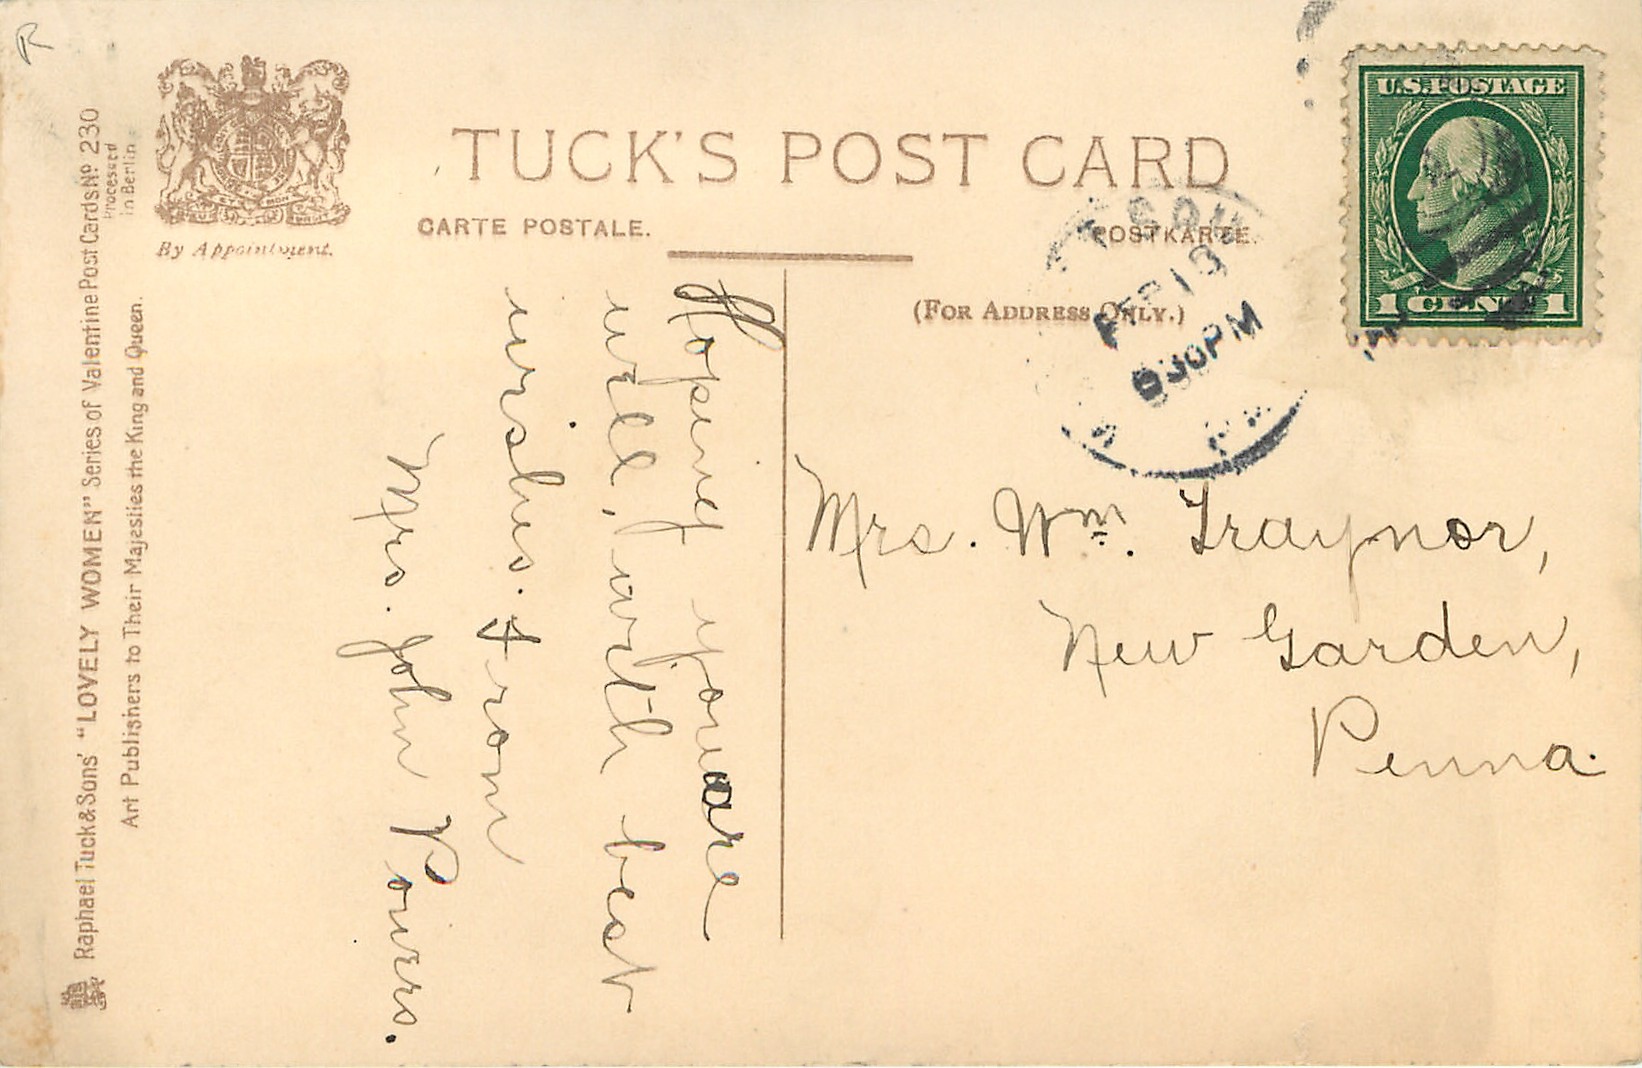 TUCK'S POST CARD
CARTE POSTALE.
POSTKARTE.
(FOR ADDRESS ONLY.)
By Appointment.
Raphael Tuck & Sons' "LOVELY WOMEN" Series of Valentine Post Cards No 230
Processed
in Berlin.
Art Publishers to Their Majesties the King and Queen.
U.S. POSTAGE
1 CENT 1
30PM
Hoping you are
well, with best
wishes. From
Mrs. John Powers.
Mrs. Wm. Traynor,
New Garden,
Penna.